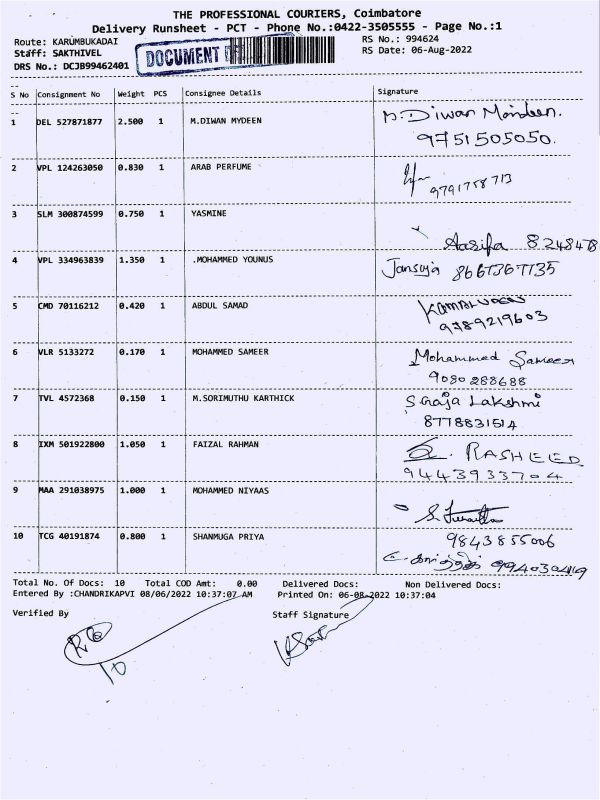 THE PROFESSIONAL COURIERS, Coimbatore
Delivery Runsheet - PCT - Phone No.:0422-3505555 - Page No.:1
Route: KARUMBUKADAI RS No.: 994624
Stafff: SAKTHIVEL RS Date: 06-Aug-2022
DRS No.: DCJB99462401 DOCUMENT
S No Consignment No Weight PCS Consignee Details Signature
1 DEL 527871877 2.500 1 M.DIWAN MYDEEN M. Diwan Moideen.
9751505050.
2 VPL 124263050 0.830 1 ARAB PERFUME
9791758713
3 SLM 300874599 0.750 1 YASMINE
Aasifa 8248478
4 VPL 334963839 1.350 1 .MOHAMMED YOUNUS Jansuja 8667367135
5 CMD 70116212 0.420 1 ABDUL SAMAD
9789219603
6 VLR 5133272 0.170 1 MOHAMMED SAMEER Mohammed Sameer
9080288688
7 TVL 4572368 0.150 1 M.SORIMUTHU KARTHICK S Graja Lakshmi
8778831514
8 IXM 501922800 1.050 1 FAIZAL RAHMAN RASHEED
9443933704
9 MAA 291038975 1.000 1 MOHAMMED NIYAAS
10 TCG 40191874 0.800 1 SHANMUGA PRIYA 9843855006
Total No. Of Docs: 10 Total COD Amt: 0.00 Delivered Docs: Non Delivered Docs:
Entered By :CHANDRIKAPVI 08/06/2022 10:37:07 AM Printed On: 06-08-2022 10:37:04
Verified By Staff Signature
10